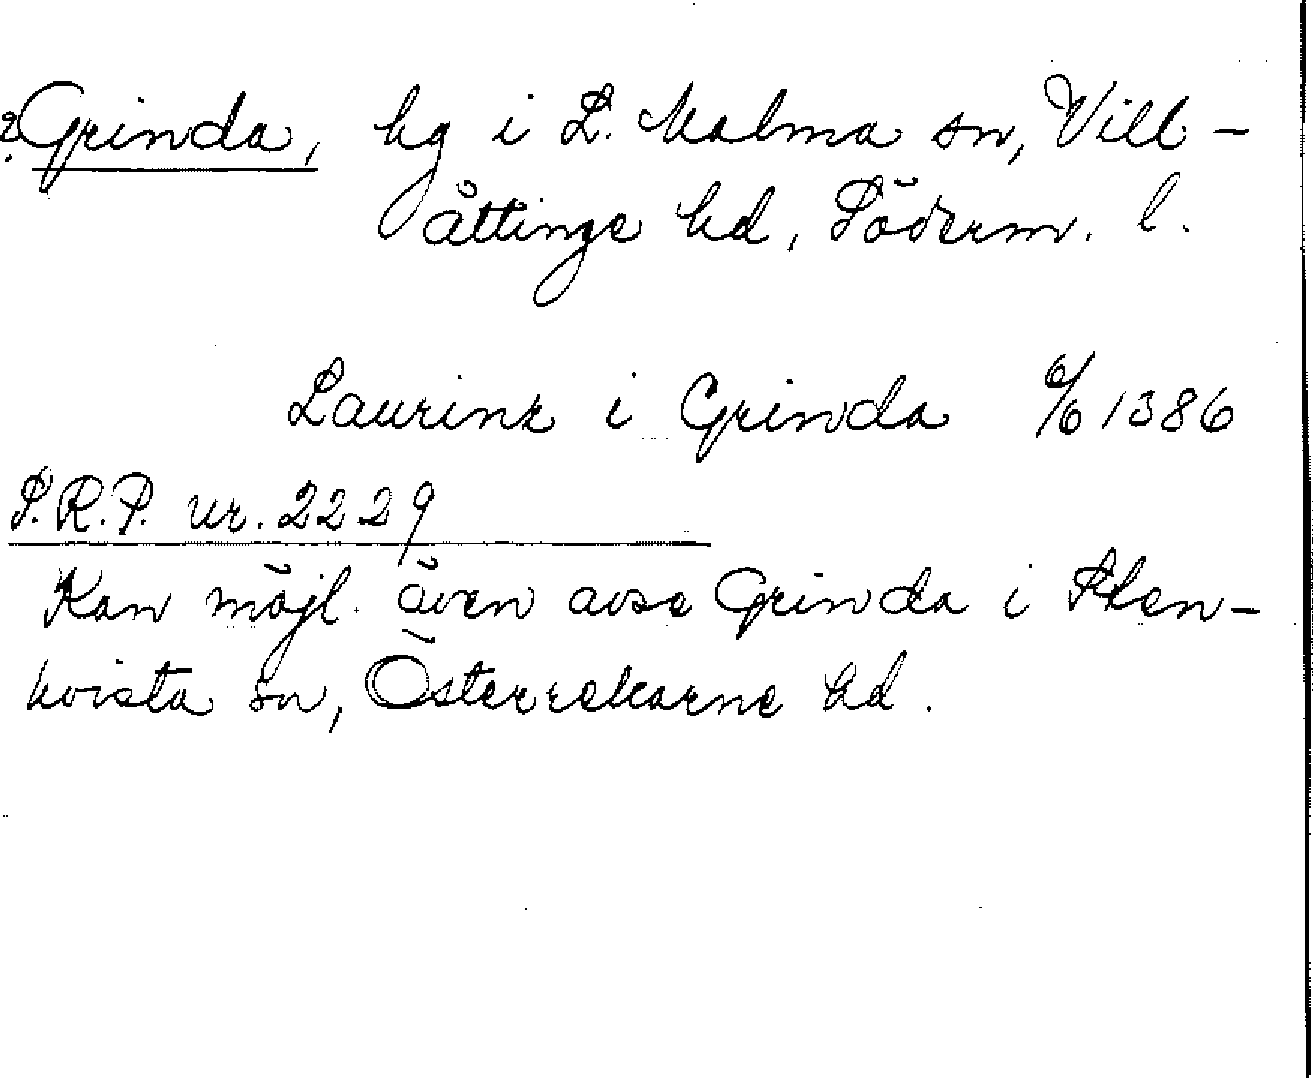 ?Grinda, hg i L. Malma sn, Vill-
åttinge hd, Söderm. l.
Laurinz i Grinda 6/6 1386
S.R.P. nr. 2229
Kan möjl. även avse Grinda i Sten-
kvista sn, Österrekarne hd.